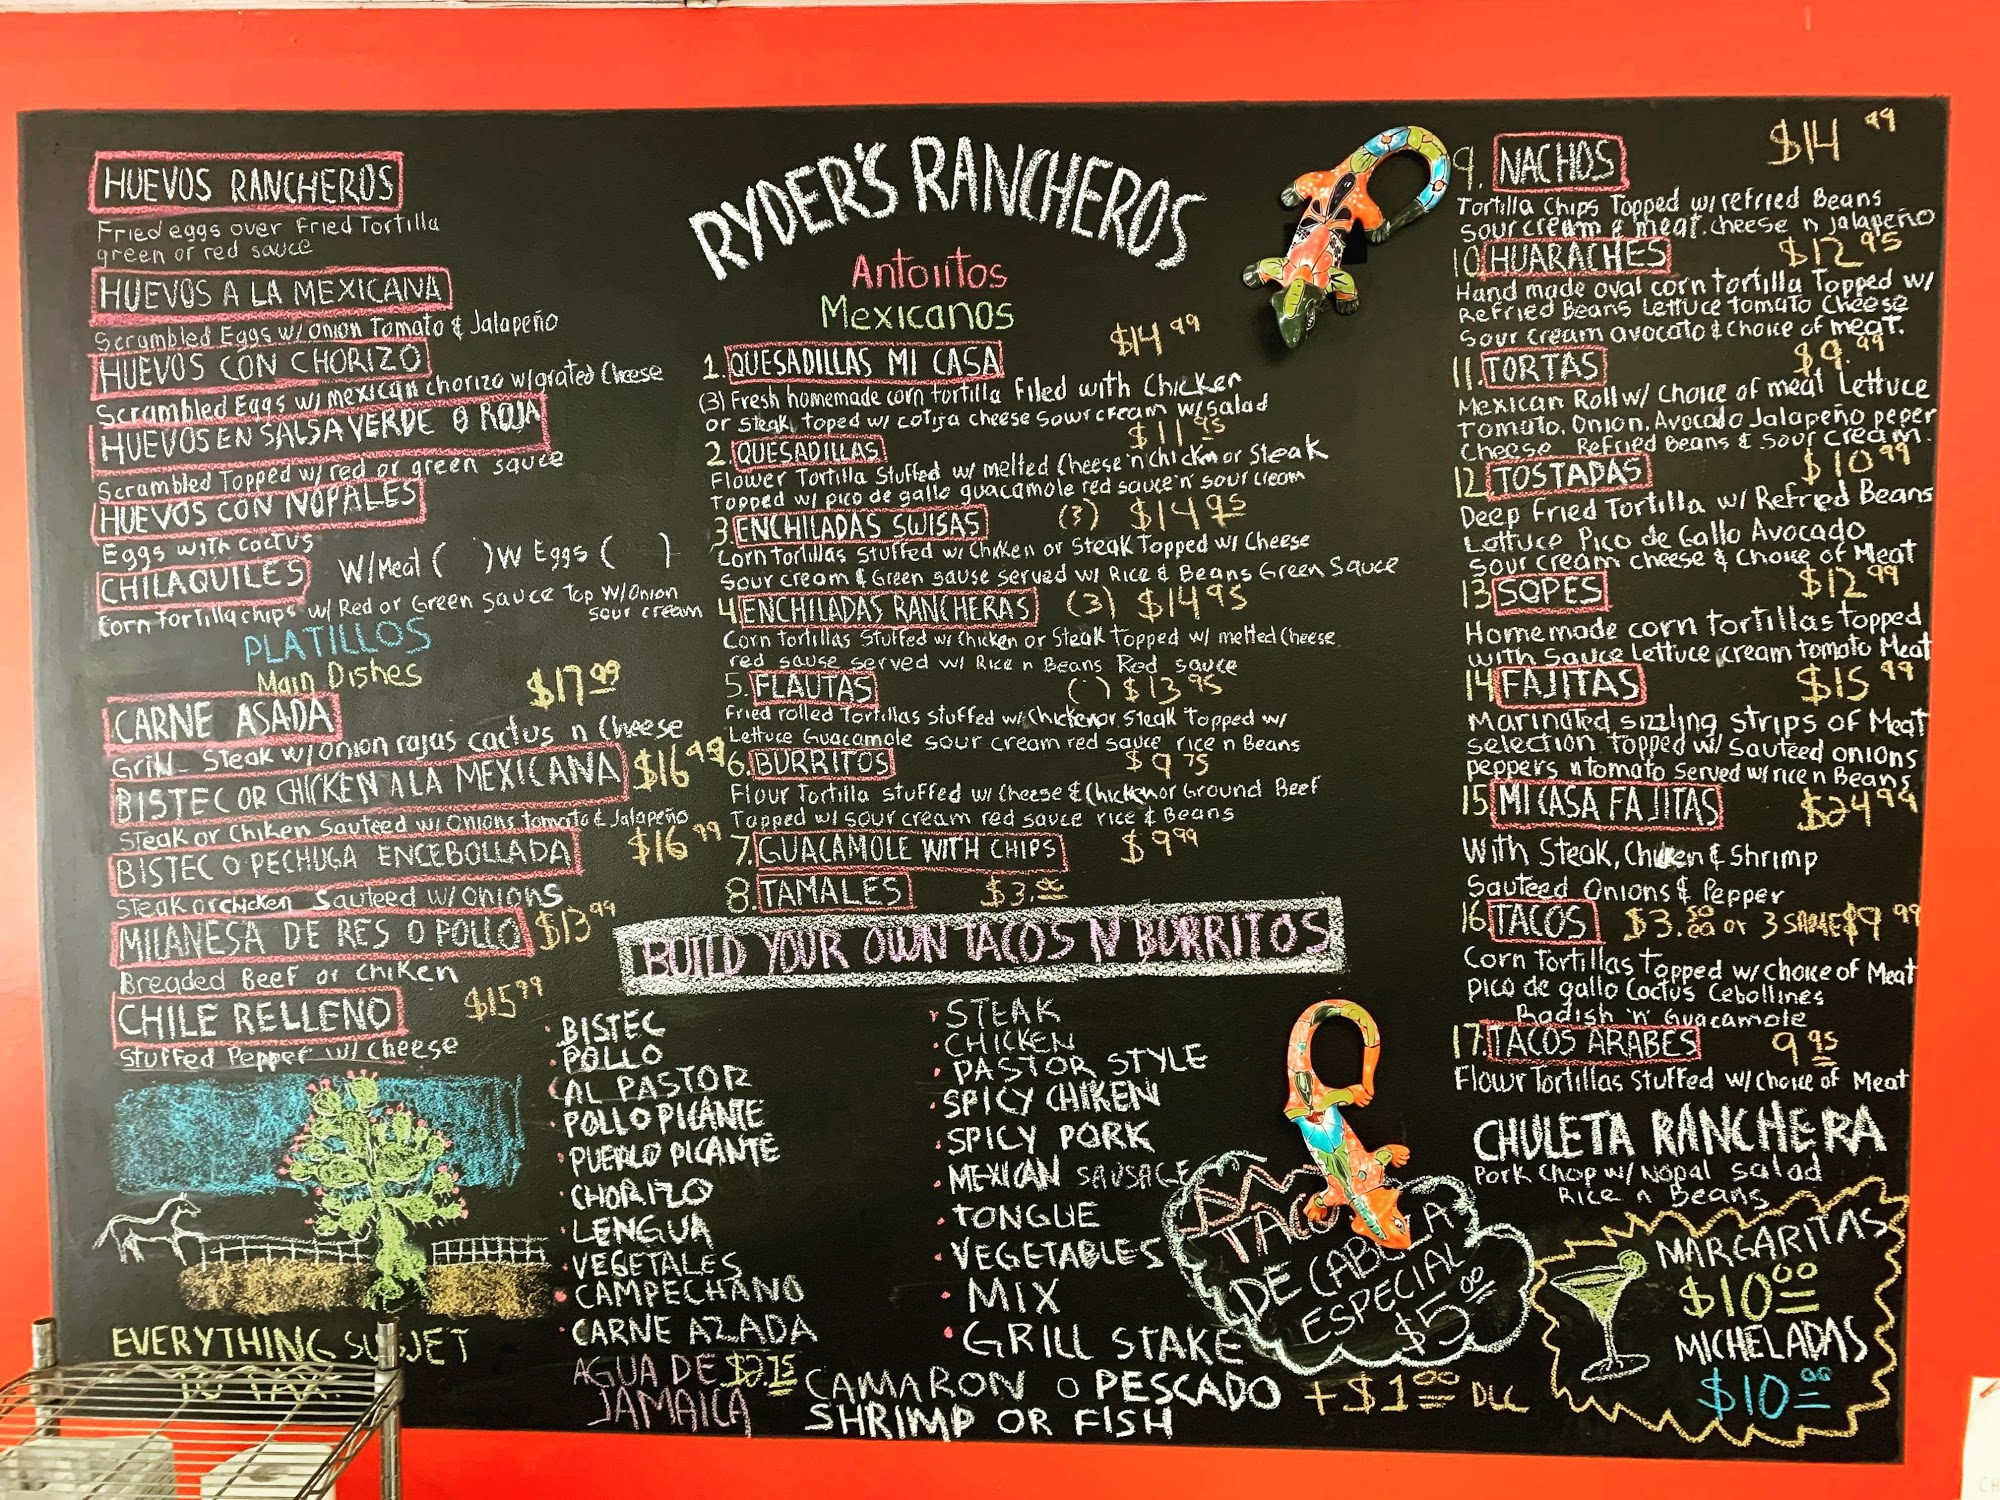 HUEVOS RANCHEROS
Fried eggs over Fried Tortilla
green or red sauce
HUEVOS A LA MEXICANA
Scrambled Eggs w/ onion Tomato & Jalapeño
HUEVOS CON CHORIZO
Scrambled Eggs w/ mexican chorizo w/ grated Cheese
HUEVOS EN SALSA VERDE O ROJA
Scrambled Topped w/ red or green sauce
HUEVOS CON NOPALES
Eggs with cactus
CHILAQUILES W/Meat ( ) W Eggs ( )
Corn Tortilla chips w/ Red or Green sauce Top w/onion
sour cream
PLATILLOS
Main Dishes
CARNE ASADA $17.99
Grill Steak w/ onion rajas cactus n Cheese
BISTEC OR CHICKEN A LA MEXICANA $16.99
Steak or Chiken Sauteed w/ Onions tomato & Jalapeño
BISTEC O PECHUGA ENCEBOLLADA $16.99
Steak or chicken Sauteed w/ onions
MILANESA DE RES O POLLO $13.99
Breaded Beef or Chiken
CHILE RELLENO $15.99
Stuffed Pepper w/ Cheese
EVERYTHING
TO TAX.
RYDER'S RANCHEROS
Antojitos
Mexicanos
1. QUESADILLAS MI CASA $14.99
(3) Fresh homemade corn tortilla filed with Chicken
or Steak, toped w/ cotija cheese sour cream w/salad
2. QUESADILLAS $11.95
Flower Tortilla Stuffed w/ melted Cheese 'n Chickn or Steak
Topped w/ pico de gallo guacamole red sauce 'n' sour cream
3. ENCHILADAS SWISAS (3) $14.95
Corn tortillas Stuffed w/ Chicken or Steak Topped w/ Cheese
sour cream & Green sause served w/ Rice & Beans Green Sauce
4 ENCHILADAS RANCHERAS (3) $14.95
Corn tortillas Stuffed w/ Chicken or Steak topped w/ melted Cheese
red sause served w/ Rice n Beans Red sauce
5. FLAUTAS ( ) $13.95
Fried rolled Tortillas stuffed w/ Chicken or Steak Topped w/
Lettuce Guacamole sour cream red sauce rice n Beans
6. BURRITOS $9.75
Flour Tortilla stuffed w/ Cheese & Chicken or Ground Beef
Topped w/ sour cream red sauce rice & Beans
7. GUACAMOLE WITH CHIPS $9.99
8. TAMALES $3.00
BUILD YOUR OWN TACOS N BURRITOS
BISTEC
POLLO
AL PASTOR
POLLO PICANTE
PUERCO PICANTE
CHORIZO
LENGUA
VEGETALES
CAMPECHANO
CARNE AZADA
STEAK
CHICKEN
PASTOR STYLE
SPICY CHIKEN
SPICY PORK
MEXICAN SAUSAGE
TONGUE
VEGETABLES
MIX
GRILL STAKE
AGUA DE $2.75
JAMAICA
CAMARON O PESCADO +$1.00 DLL
SHRIMP OR FISH
TACO
DE CABEZA
ESPECIAL
$5.00
9. NACHOS $14.99
Tortilla Chips Topped w/ refried Beans
sour cream & meat. cheese n jalapeño
10 HUARACHES $12.95
Hand made oval corn tortilla Topped w/
Refried Beans Lettuce tomato Cheese
Sour cream avocato & choice of meat.
11. TORTAS $9.99
Mexican Roll w/ Choice of meat Lettuce
Tomato. Onion. Avocado Jalapeño peper
Cheese Refried Beans & Sour Cream.
12. TOSTADAS $10.99
Deep Fried Tortilla w/ Refried Beans
Lettuce Pico de Gallo Avocado
Sour cream cheese & Choice of Meat
13 SOPES $12.99
Homemade corn Tortillas topped
with Sauce Lettuce cream tomato Meat
14 FAJITAS $15.99
Marinated sizzling strips of Meat
selection Topped w/ Sauteed onions
peppers n tomato Served w/ rice n Beans
15 MI CASA FAJITAS $24.99
With Steak, Chicken & Shrimp
Sauteed Onions & Pepper
16 TACOS $3. or 3 SAME $9.99
Corn Tortillas Topped w/ choice of Meat
pico de gallo Cactus Cebollines
Radish 'n' Guacamole
17. TACOS ARABES 9.95
Flour Tortillas Stuffed w/ choice of Meat
CHULETA RANCHERA
Pork Chop w/ Nopal Salad
Rice n Beans
MARGARITAS
$10.00
MICHELADAS
$10.00